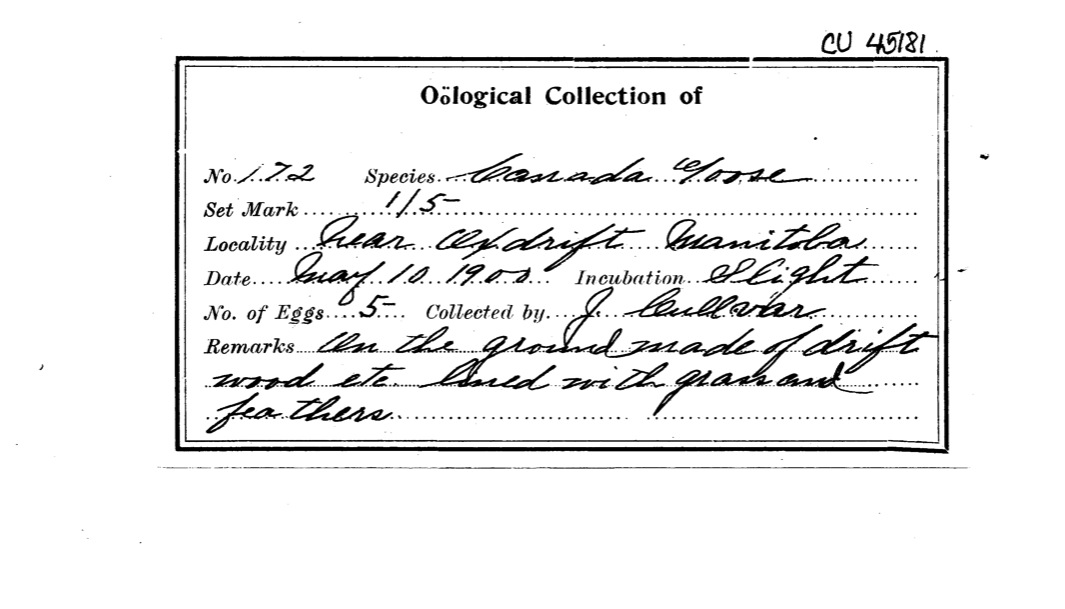 CU 45181
Oölogical Collection of
No. 172 Species Canada Goose
Set Mark 1/5
Locality Near Oxdrift Manitoba
Date May 10 1900 Incubation Slight
No. of Eggs 5 Collected by J.
Remarks On the ground made of drift
wood etc. lined with grass and
feathers